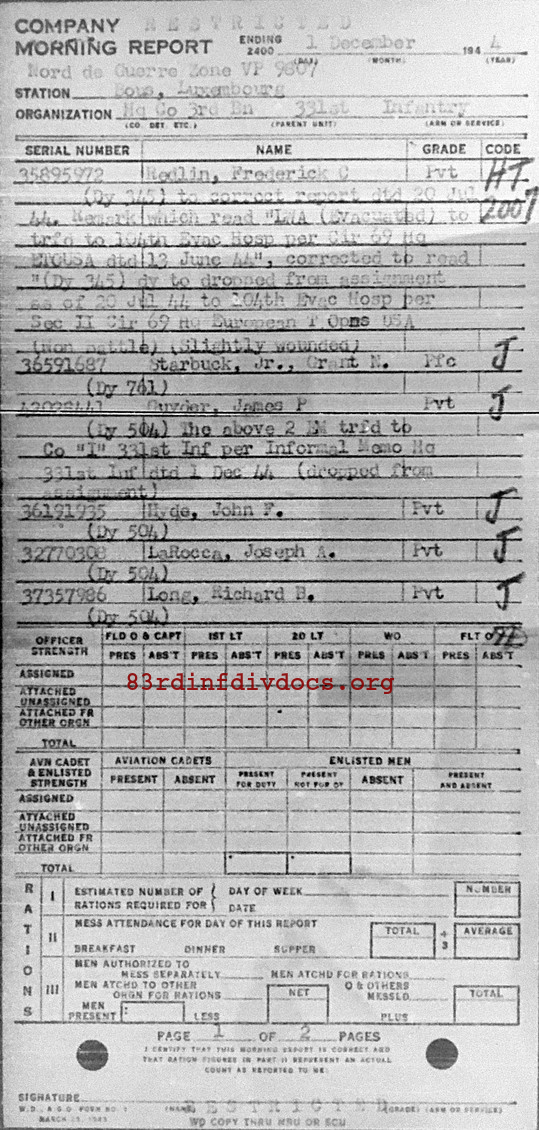 RESTRICTED
COMPANY
MORNING REPORT ENDING 2400 1 December 1944
(DAY) (MONTH) (YEAR)
Nord de Guerre Zone VP 9807
STATION Bous, Luxembourg
ORGANIZATION Hq Co 3rd Bn 331st Infantry
(CO. DET. ETC.) (PARENT UNIT) (ARM OR SERVICE)
SERIAL NUMBER NAME GRADE CODE
35895972 Redlin, Frederick C Pvt HT
(Dy 345) to correct report dtd 20 Jul 2007
44. Remark which read "LWA (Evacuated) to
trfd to 104th Evac Hosp per Cir 69 Hq
ETOUSA dtd 13 June 44", corrected to read
"(Dy 345) dy to dropped from assignment
as of 20 Jul 44 to 104th Evac Hosp per
Sec II Cir 69 Hq European T Opns USA
(Non battle) (Slightly wounded)
36591687 Starbuck, Jr., Grant N. Pfc J
(Dy 761)
Guyder, James P Pvt J
(Dy 504) The above 2 EM trfd to
Co "I" 331st Inf per Informal Memo Hq
331st Inf dtd 1 Dec 44 (dropped from
assignment)
36191935 Hyde, John F. Pvt J
(Dy 504)
32770308 LaRocca, Joseph A. Pvt J
(Dy 504)
37357986 Long, Richard B. Pvt J
(Dy 504)
OFFICER STRENGTH FLD O & CAPT 1ST LT 2D LT WO FLT O
PRES ABS'T PRES ABS'T PRES ABS'T PRES ABS'T PRES ABS'T
ASSIGNED
ATTACHED UNASSIGNED
83rdinfdivdocs.org
ATTACHED FR OTHER ORGN
TOTAL
AVN CADET & ENLISTED STRENGTH AVIATION CADETS ENLISTED MEN
PRESENT ABSENT PRESENT FOR DUTY PRESENT NOT FOR DY ABSENT PRESENT AND ABSENT
ASSIGNED
ATTACHED UNASSIGNED
ATTACHED FR OTHER ORGN
TOTAL
RATIONS
I ESTIMATED NUMBER OF RATIONS REQUIRED FOR { DAY OF WEEK NUMBER
DATE
II MESS ATTENDANCE FOR DAY OF THIS REPORT TOTAL ÷ 3 AVERAGE
BREAKFAST DINNER SUPPER
III MEN AUTHORIZED TO MESS SEPARATELY MEN ATCHD FOR RATIONS
MEN ATCHD TO OTHER ORGN FOR RATIONS NET O & OTHERS MESSED TOTAL
MEN PRESENT : LESS PLUS
PAGE 1 OF 2 PAGES
I CERTIFY THAT THIS MORNING REPORT IS CORRECT AND
THAT RATION FIGURES IN PART II REPRESENT AN ACTUAL
COUNT AS REPORTED TO ME:
SIGNATURE
W.D., A.G.O. FORM NO. 1 (NAME) RESTRICTED (GRADE) (ARM OR SERVICE)
MARCH
WD COPY THRU MRU OR SCU